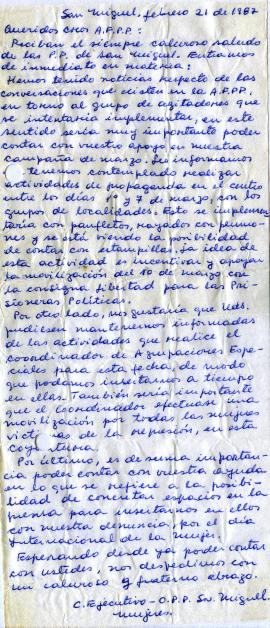 San Miguel, febrero 21 de 1987
Queridos cros A.F.P.P:
Reciban el siempre caluroso saludo
de las P.P. de San Miguel. Entramos
de inmediato en materia:
Hemos tenido noticias respecto de las
conversaciones que existen en la A.F.P.P.,
en torno al grupo de agitadores que
se intentaría implementar, en este
sentido sería muy importante poder
contar con vuestro apoyo en nuestra
campaña de marzo. Les informamos
tenemos contemplado realizar
actividades de propaganda en el centro
entre los días y 7 de marzo, con los
grupos de localidades. Esto se implemen-
taría con panfletos, rayados con plumo-
nes y se está viendo la posibilidad
de contar con estampillas. La idea de
esta actividad es incentivar y apoyar
la movilización del 10 de marzo con
la consigna libertad para las Pri-
sioneras Políticas.
Por otro lado, nos gustaría que Uds.
pudiesen mantenernos informadas
de las actividades que realice el
coordinador de Agrupaciones Espe-
ciales para esta fecha de modo
que podamos insertarnos a tiempo
en ellas. También sería importante
que el Coordinador efectuase una
movilización por todas las mujeres
víct as de la represión, en esta
coyuntura.
Por último, es de suma importan-
cia poder contar con vuestra ayuda
en lo que se refiere a la posibi-
lidad de concretar espacios en la
prensa para insertarnos en ellos
con nuestra denuncia, por el día
Internacional de la Mujer.
Esperando desde ya poder contar
con ustedes, nos despedimos con
un caluroso y fraterno abrazo.
C. Ejecutivo - O.P.P. Sn. Miguel.
mujeres.